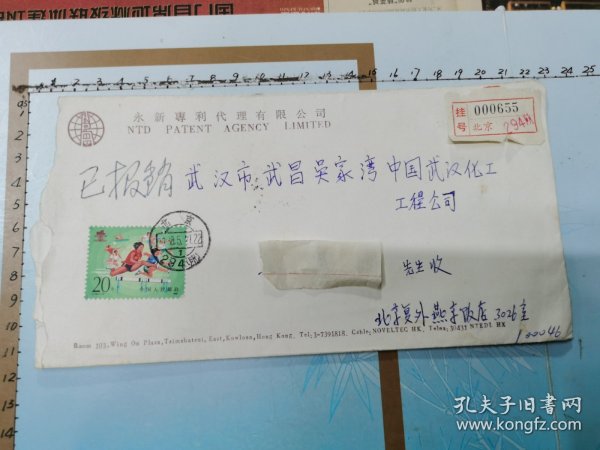 永新專利代理有限公司
NTD PATENT AGENCY LIMITED
挂号
000655
北京
已报销 武汉市武昌吴家湾中国武汉化工
工程公司
20
先生收
北京复外燕京饭店3026室
100046
Room 303, Wing On Plaza, Tsimshatsui, East, Kowloon, Hong Kong. Tel: 3-7391818. Cable: NOVELTEC HK. Telex: 30431 NTEDL HX
孔夫子旧书网
www.kongfz.com